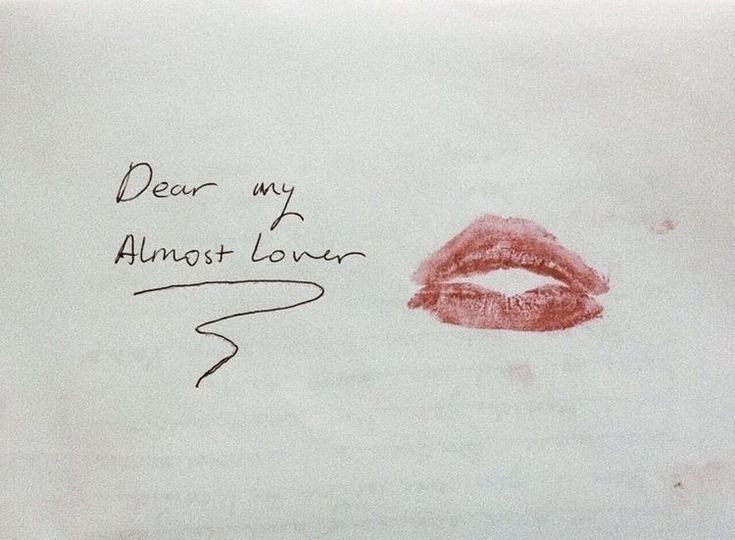 Dear my
Almost Lover